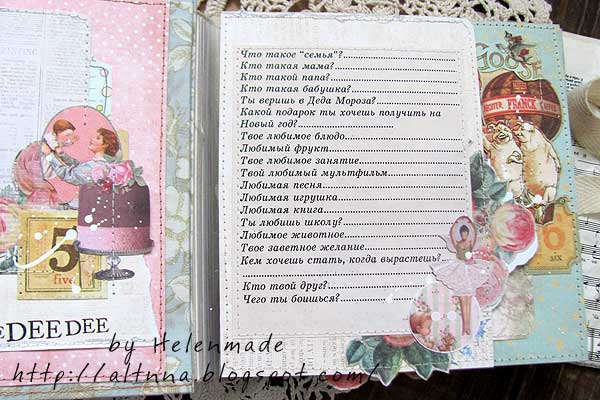 5
five
DEE DEE
Что такое "семья"?
Кто такая мама?
Кто такой папа?
Кто такая бабушка?
Ты веришь в Деда Мороза?
Какой подарок ты хочешь получить на
Новый год?
Твое любимое блюдо
Любимый фрукт
Твое любимое занятие
Твой любимый мультфильм
Любимая песня
Любимая игрушка
Любимая книга
Ты любишь школу?
Любимое животное
Твое заветное желание
Кем хочешь стать, когда вырастешь?
Кто твой друг?
Чего ты боишься?
FRANCK
6
SIX
by Helenmade
http://altnna.blogspot.com/